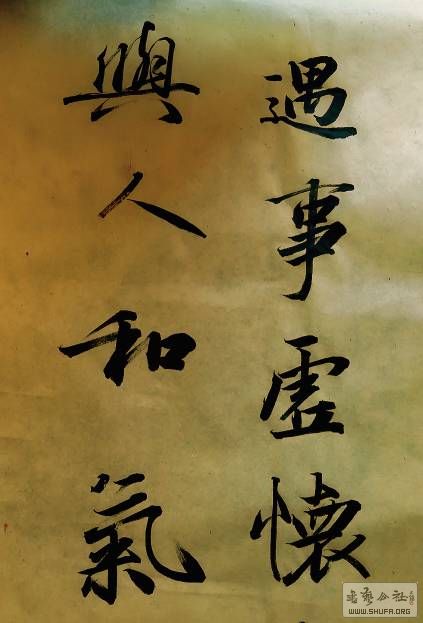 遇事虛懷
與人和氣
书艺公社
WWW.SHUFA.ORG